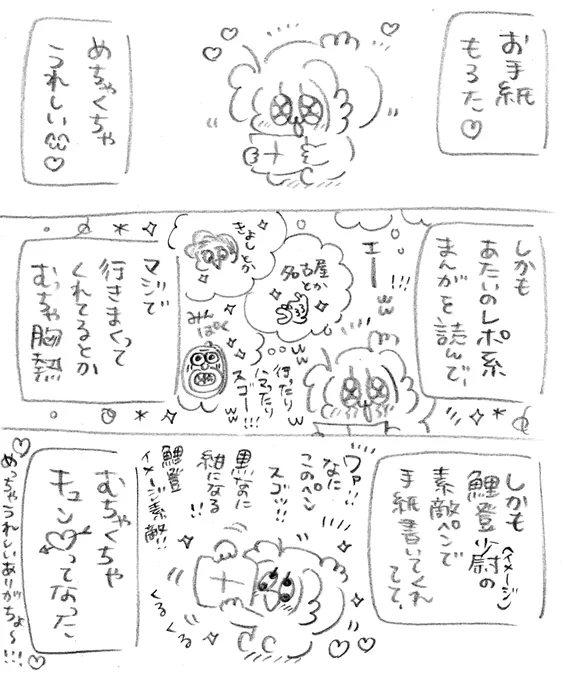 お手紙
もろた♡
めちゃくちゃ
うれしい♡
しかも
あたいのレポ系
まんがを読んで、
エーー!!!
ww
名古屋
とか
きよしとか
みん
ぱく
ww
行ったり
ハマったり
スゴー!!!
ww
マジで
行きまくって
くれてるとか
むっちゃ胸熱
しかも
鯉登少尉の
(イメージ)
素敵ペンで
手紙書いてくれ
てて、
ワァ!!
なに
このペン
スゴッ!!
黒なのに
紺になる
!!
鯉登
イメージ素敵!!
くるくる
むちゃくちゃ
キュン♡ってなった
めっちゃうれしいありがちょ〜!!!♡